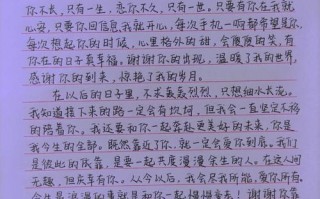 你不长，只有一生，恋你不久，只有一世，只要有你在我就
心安，只要你回信息我就开心，每次手机一响都希望是你，
每次想起你的时候，心里格外的甜，会傻傻的笑，有
你在的日子真幸福，谢谢你的出现，温暖了我的世界，
感谢你的到来，惊艳了我的岁月。
在以后的日子里，不求轰轰烈烈，只想细水长流。
我知道接下来的路一定会有坎坷，但我会一直坚定不移
的陪着你。我还要和你一起奔赴更美好的未来，你是
我今生的全部。既然靠近了你，就一定会爱你到底。我们
是彼此的依靠，是要一起共度漫漫余生的人。在这人间
无趣，但庆幸有你。从今以后，我会尽我所能，爱你所有
今生最浪漫的事就是和你一起慢慢变老！谢谢你靠